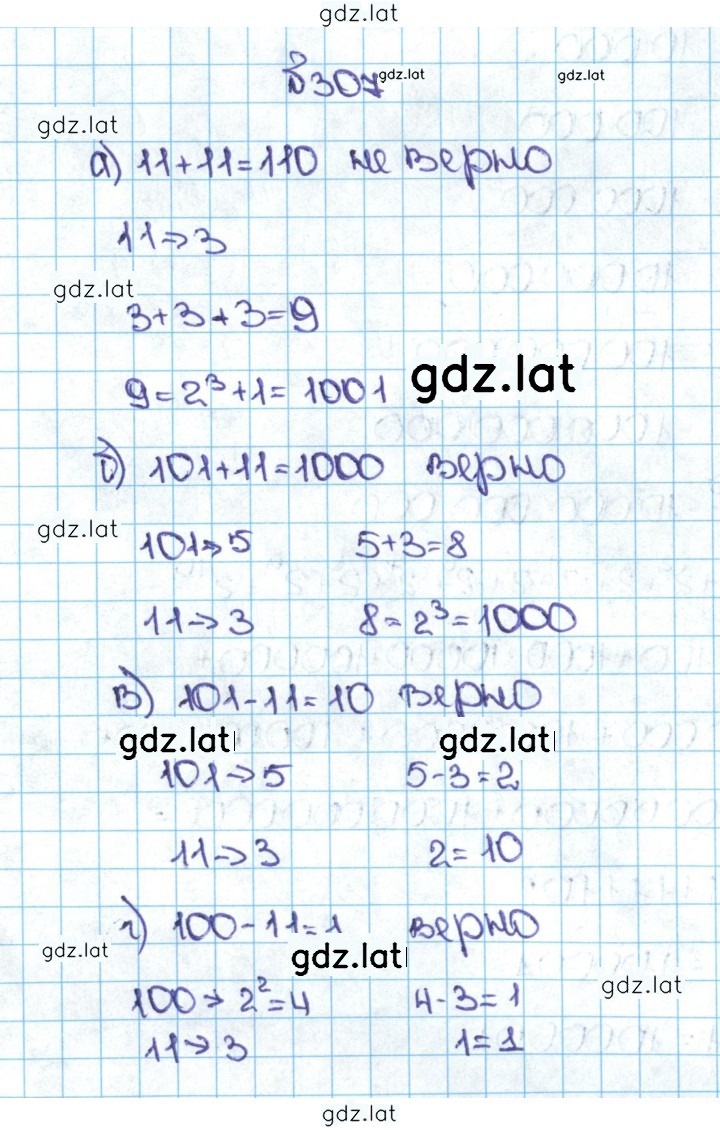 gdz.lat
№307 gdz.lat gdz.lat
gdz.lat
а) 11+11=110 не верно
11→3
gdz.lat
3+3+3=9
9=2³+1=1001 gdz.lat
б) 101+11=1000 верно
gdz.lat
101→5 5+3=8
11→3 8=2³=1000
в) 101-11=10 верно
gdz.lat gdz.lat
101→5 5-3=2
11→3 2=10
г) 100-11=1 верно
gdz.lat gdz.lat
100→2²=4 4-3=1 gdz.lat
11→3 1=1
gdz.lat